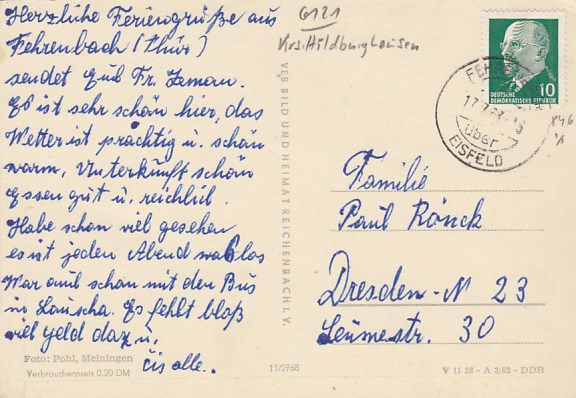 Herzliche Feriengrüße aus
Fehrenbach (Thür)
sendet Fr.
Es ist sehr schön hier, das
Wetter ist prächtig u. schön
warm, Unterkunft schön
Essen gut u. reichlich.
Habe schon viel gesehen
es ist jeden Abend was los
War auch schön mit den Bus
in Lauscha. Es fehlt bloß
viel Geld dazu,
alle.
Foto: Pohl, Meiningen
Verbraucherpreis 0,20 DM
6121
Krs. Hildburghausen
VEB BILD UND HEIMAT REICHENBACH I. V.
11/2768
10
DEUTSCHE
DEMOKRATISCHE REPUBLIK
über
EISFELD
Familie
Paul Rönck
Dresden-N 23
Leumestr. 30
V 11 28 - A 3/62 - DDR